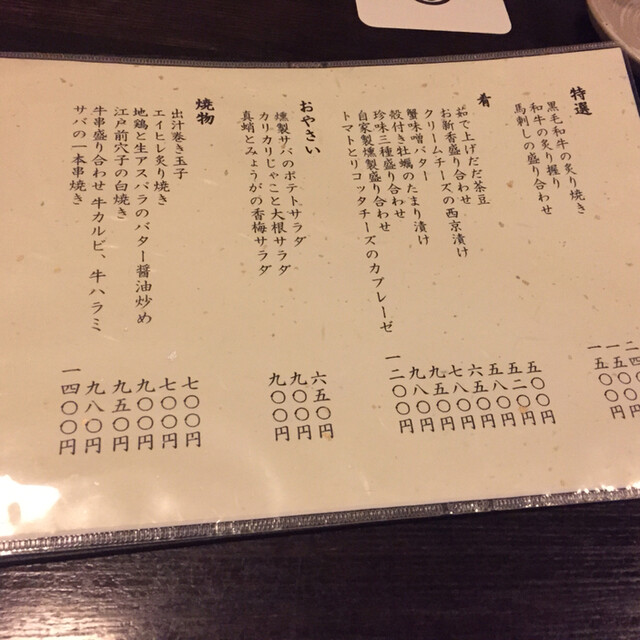 特選
黒毛和牛の炙り焼き
和牛の炙り握り
馬刺しの盛り合わせ
肴
茹で上げだだ茶豆 五〇〇円
お新香盛り合わせ 五二〇円
クリームチーズの西京漬け 五八〇円
蟹味噌バター 六五〇円
殻付き牡蠣のたまり漬け 七八〇円
珍味三種盛り合わせ 九五〇円
自家製燻製盛り合わせ 九八〇円
トマトとリコッタチーズのカプレーゼ 一二〇〇円
おやさい
燻製サバのポテトサラダ 六五〇円
カリカリじゃこと大根サラダ 九〇〇円
真蛸とみょうがの香梅サラダ 九〇〇円
焼物
出汁巻き玉子 七〇〇円
エイヒレ炙り焼き 七〇〇円
地鶏と生アスパラのバター醤油炒め 九〇〇円
江戸前穴子の白焼き 九五〇円
牛串盛り合わせ 牛カルビ、牛ハラミ 九八〇円
サバの一本串焼き 一四〇〇円